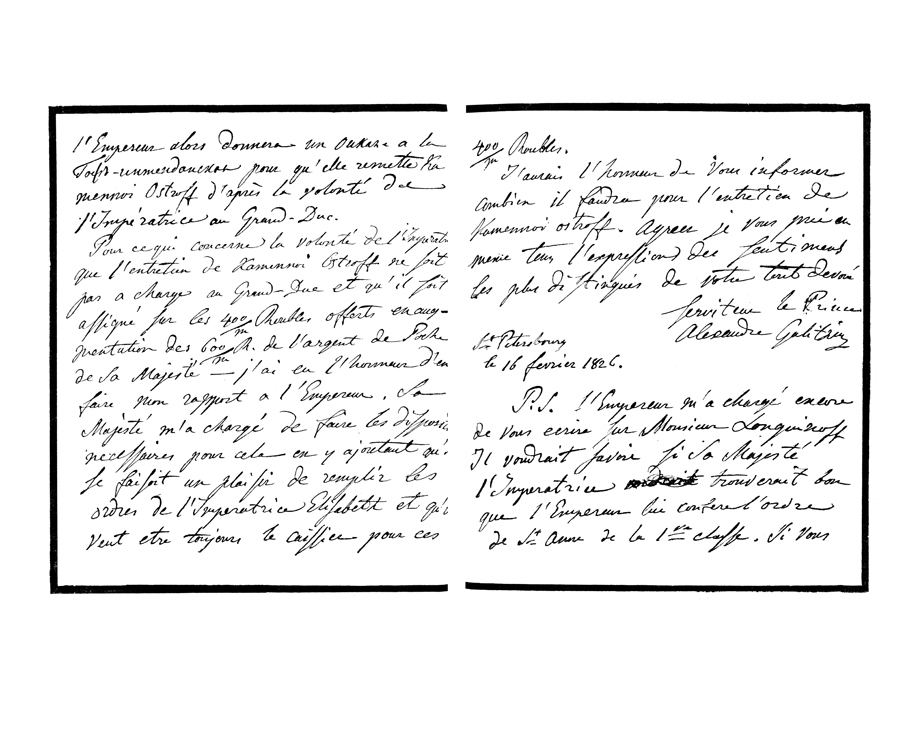 l'Empereur alors donnera un ouкazе a la
Гофъ-интендантская pour qu'elle remette Ka
mennoi Ostroff d'après la volonté de
l'Impératrice au Grand-Duc.
Pour ce qui concerne la volonté de l'Imperatr
que l'entretien de Kamennoi Ostroff ne soit
pas a charge au Grand-Duc et qu'il soit
assigné sur les 400/m Roubles offerts en aug-
mentation des 600/m R. de l'argent de Poche
de Sa Majesté — j'ai eu l'honneur d'en
faire mon rapport a l'Empereur. Sa
Majésté m'a chargé de faire les disposi
necessaires pour cela en y ajoutant qu'i
se faisoit un plaisir de remplir les
ordres de l'Imperatrice Elisabeth et qu'i
veut etre toujours le caissier pour ces
400/m Roubles.
J'aurais l'honneur de Vous informer
combien il faudra pour l'entretien de
Kamennoi ostroff. Agreer je vous prie en
meme tems l'expressiond des sentimens
les plus distingués de votre tout devoué
serviteur le Prince
Alexandre Galitzin
St. Petersbourg
le 16 fevrier 1826.
P.S. l'Empereur m'a chargé encore
de vous ecrire sur Monsieur Longuinoff
Il voudrait savoir si Sa Majesté
l'Imperatrice trouverait bon
que l'Empereur lui confere l'ordre
de Ste Anne de la 1re classe. Si Vous